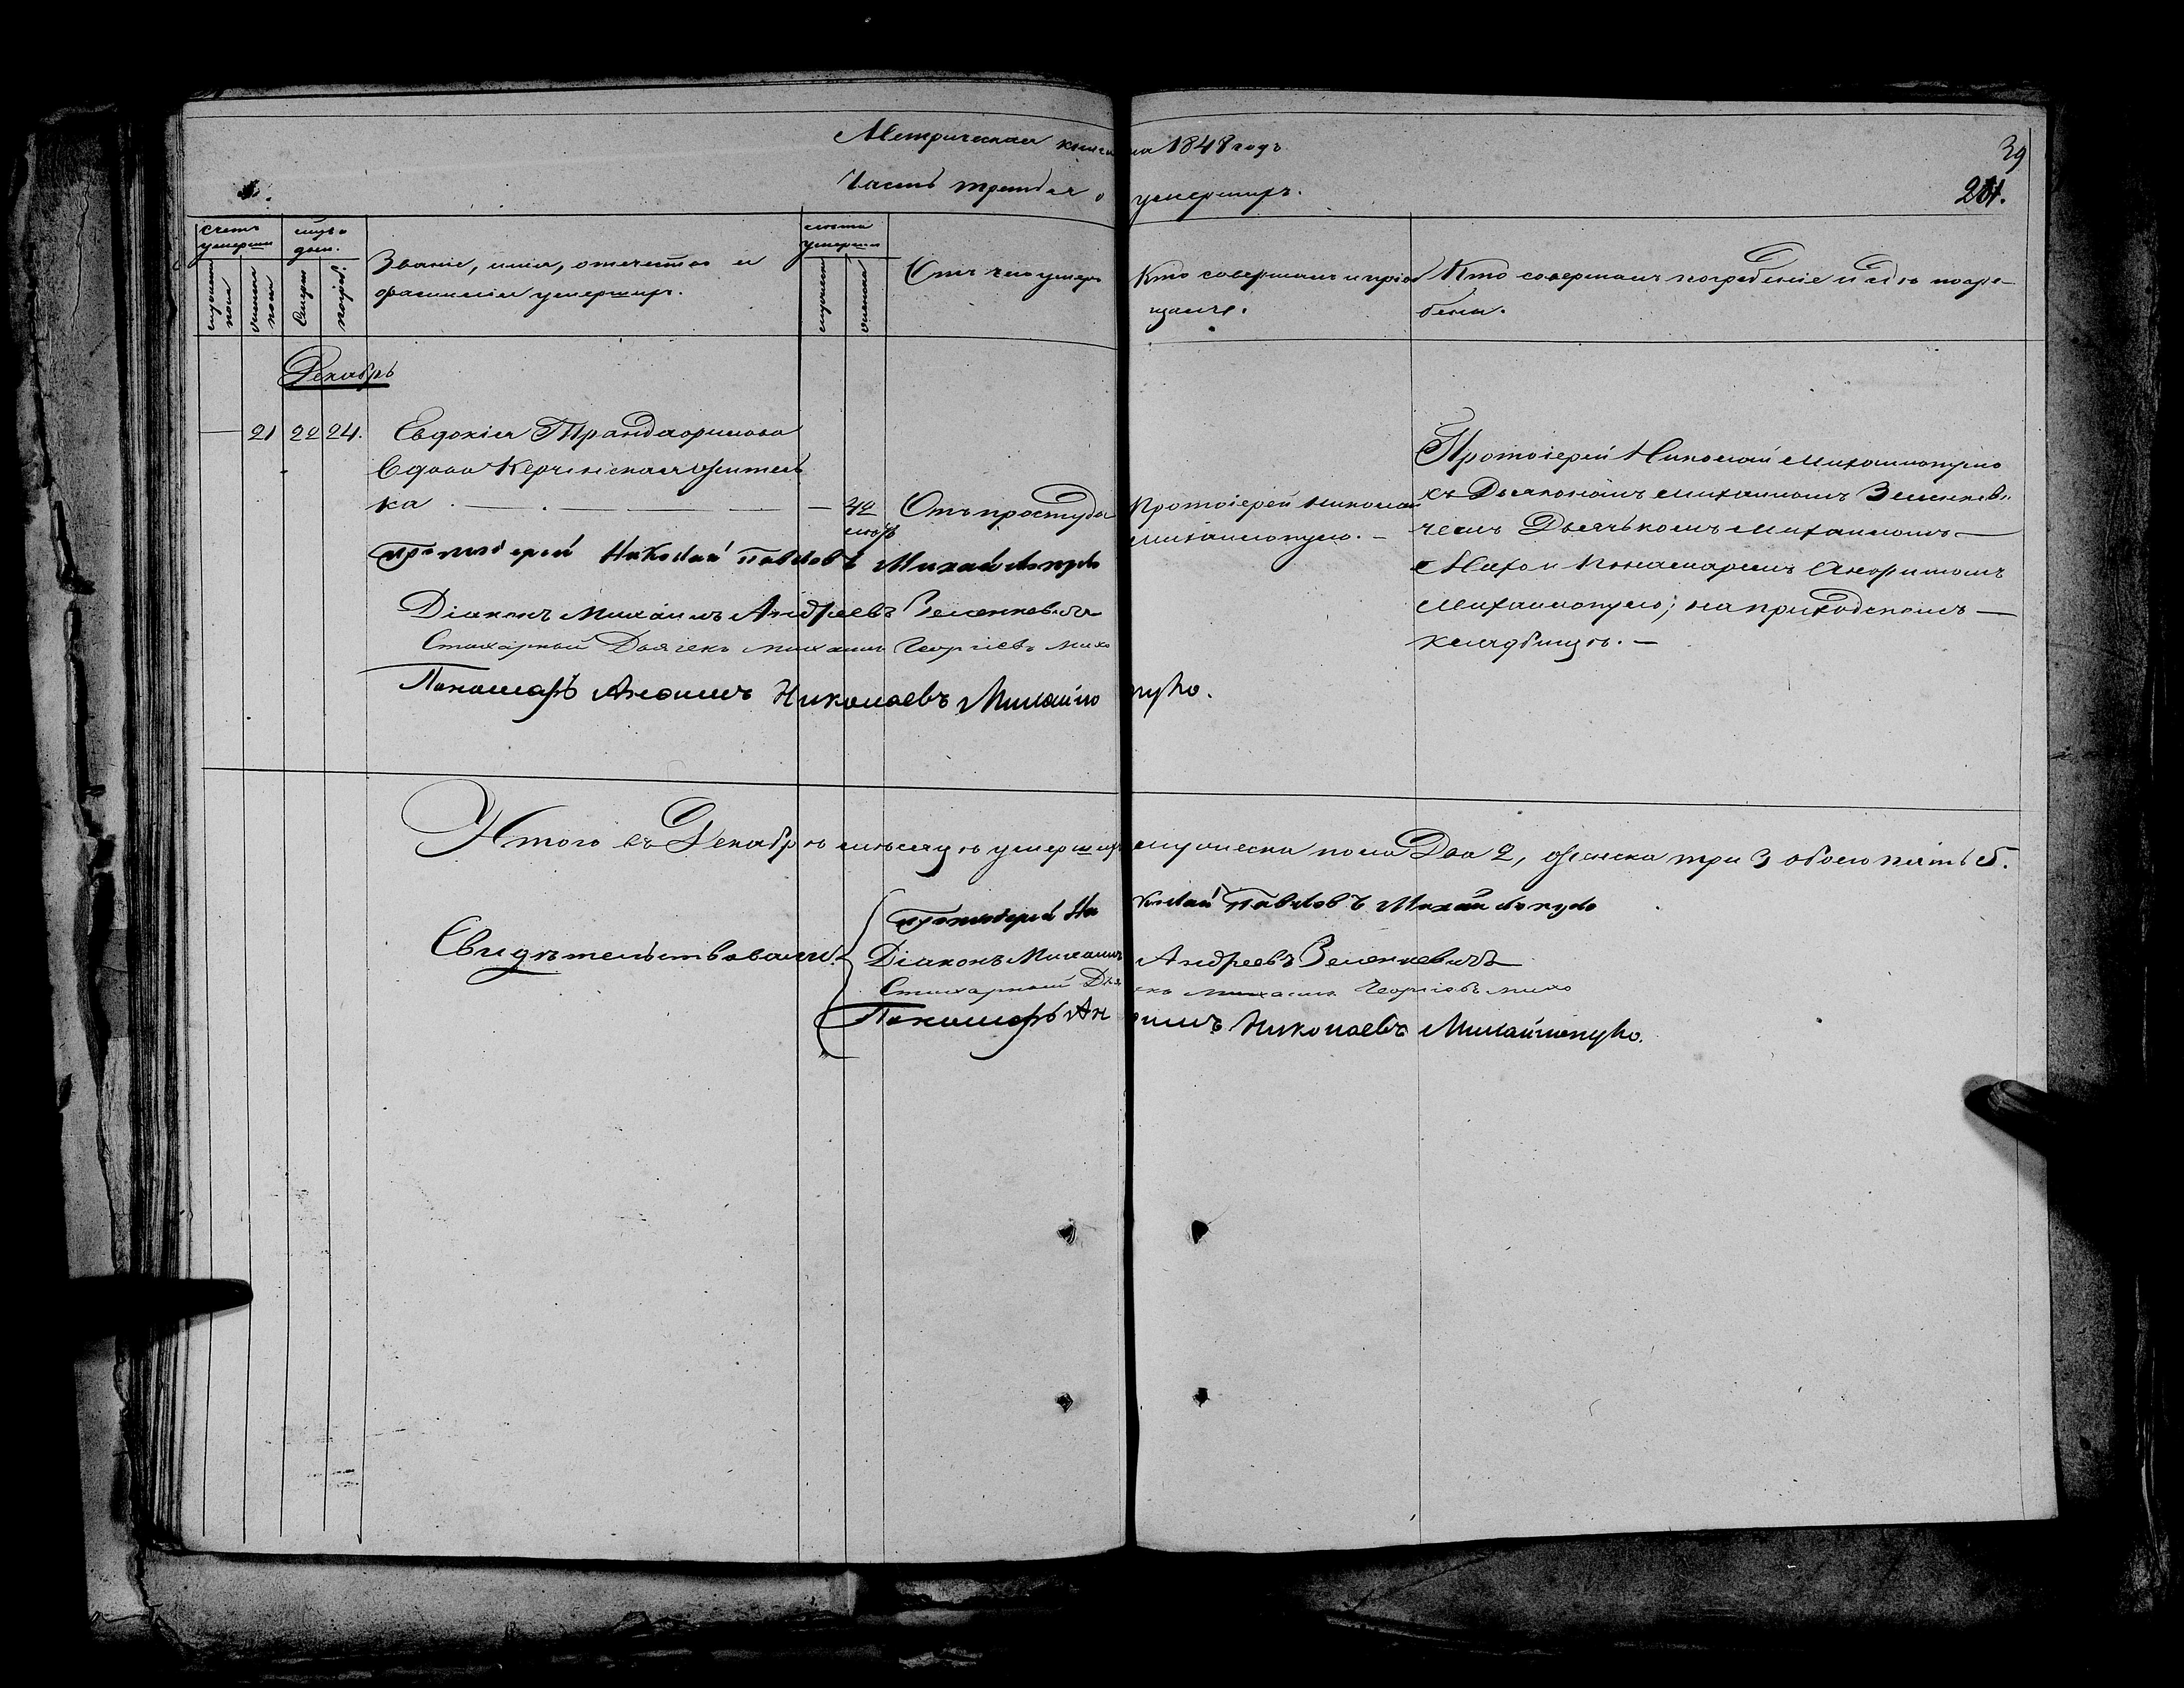 Метрическая книга на 1848 годъ
39
Часть третья о умершихъ.
201.
счетъ умершихъ
мужеска пола
женска пола
мѣс. и ден.
Смерт
погреб.
Званіе, имя, отечество и
фамилія умершихъ.
лѣта умершихъ
мужеска
женска
Отъ чего умеръ
Кто совершалъ
Кто совершалъ погребеніе и гдѣ погре-
бены.
Декабрь
— 21 22 24.
Евдокія Трандафилова
Вдова Керченская жител
ка — 42
Отъ простуды
Протоіерей Николай
Михаилопуло. —
Протоіерей Николай Михаилопуло
съ Дьякономъ Михаиломъ Зеленкеви-
чемъ Дьячькомъ Михаиломъ —
Михо и Понамаремъ
Михаилопуло; на приходскомъ —
кладбищѣ. —
Протоіерей Николай Павловъ Михайлопуло
Діаконъ Михаилъ Андреевъ Зеленкевичъ
Стихарный Дьячекъ Михаилъ Георгіевъ Михо
Пономарь Николаевъ Михайлопуло.
Итого въ Декабрѣ мѣсяцѣ умершихъ мужеска пола Два 2, женска три 3 обоего пять 5.
Свидѣтельствовали:
Протоіерей Николай Павловъ Михайлопуло
Діаконъ Михаилъ Андреевъ Зеленкевичъ
Стихарный Дьячекъ Михаилъ Георгіевъ Михо
Пономарь Николаевъ Михайлопуло.